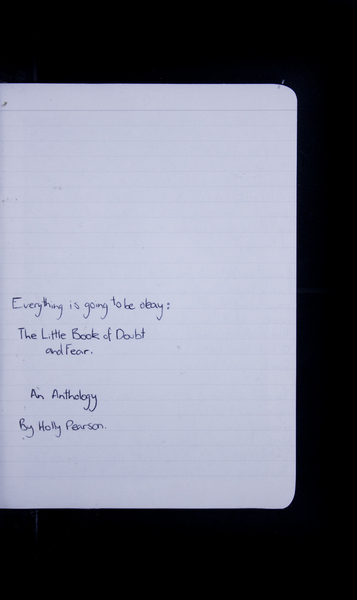 Everything is going to be okay:
The Little Book of Doubt
and Fear.
An Anthology
By Holly Pearson.